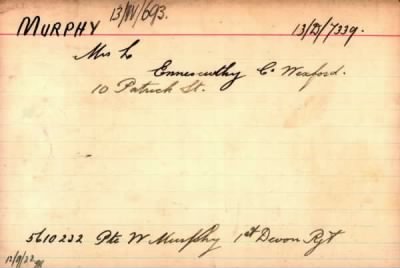 MURPHY 13/W/693. 13/D/7339.
Mrs L
Enniscorthy Co Wexford.
10 Patrick St.
5610232 Pte W Murphy 1st Devon Rgt
12/9/22